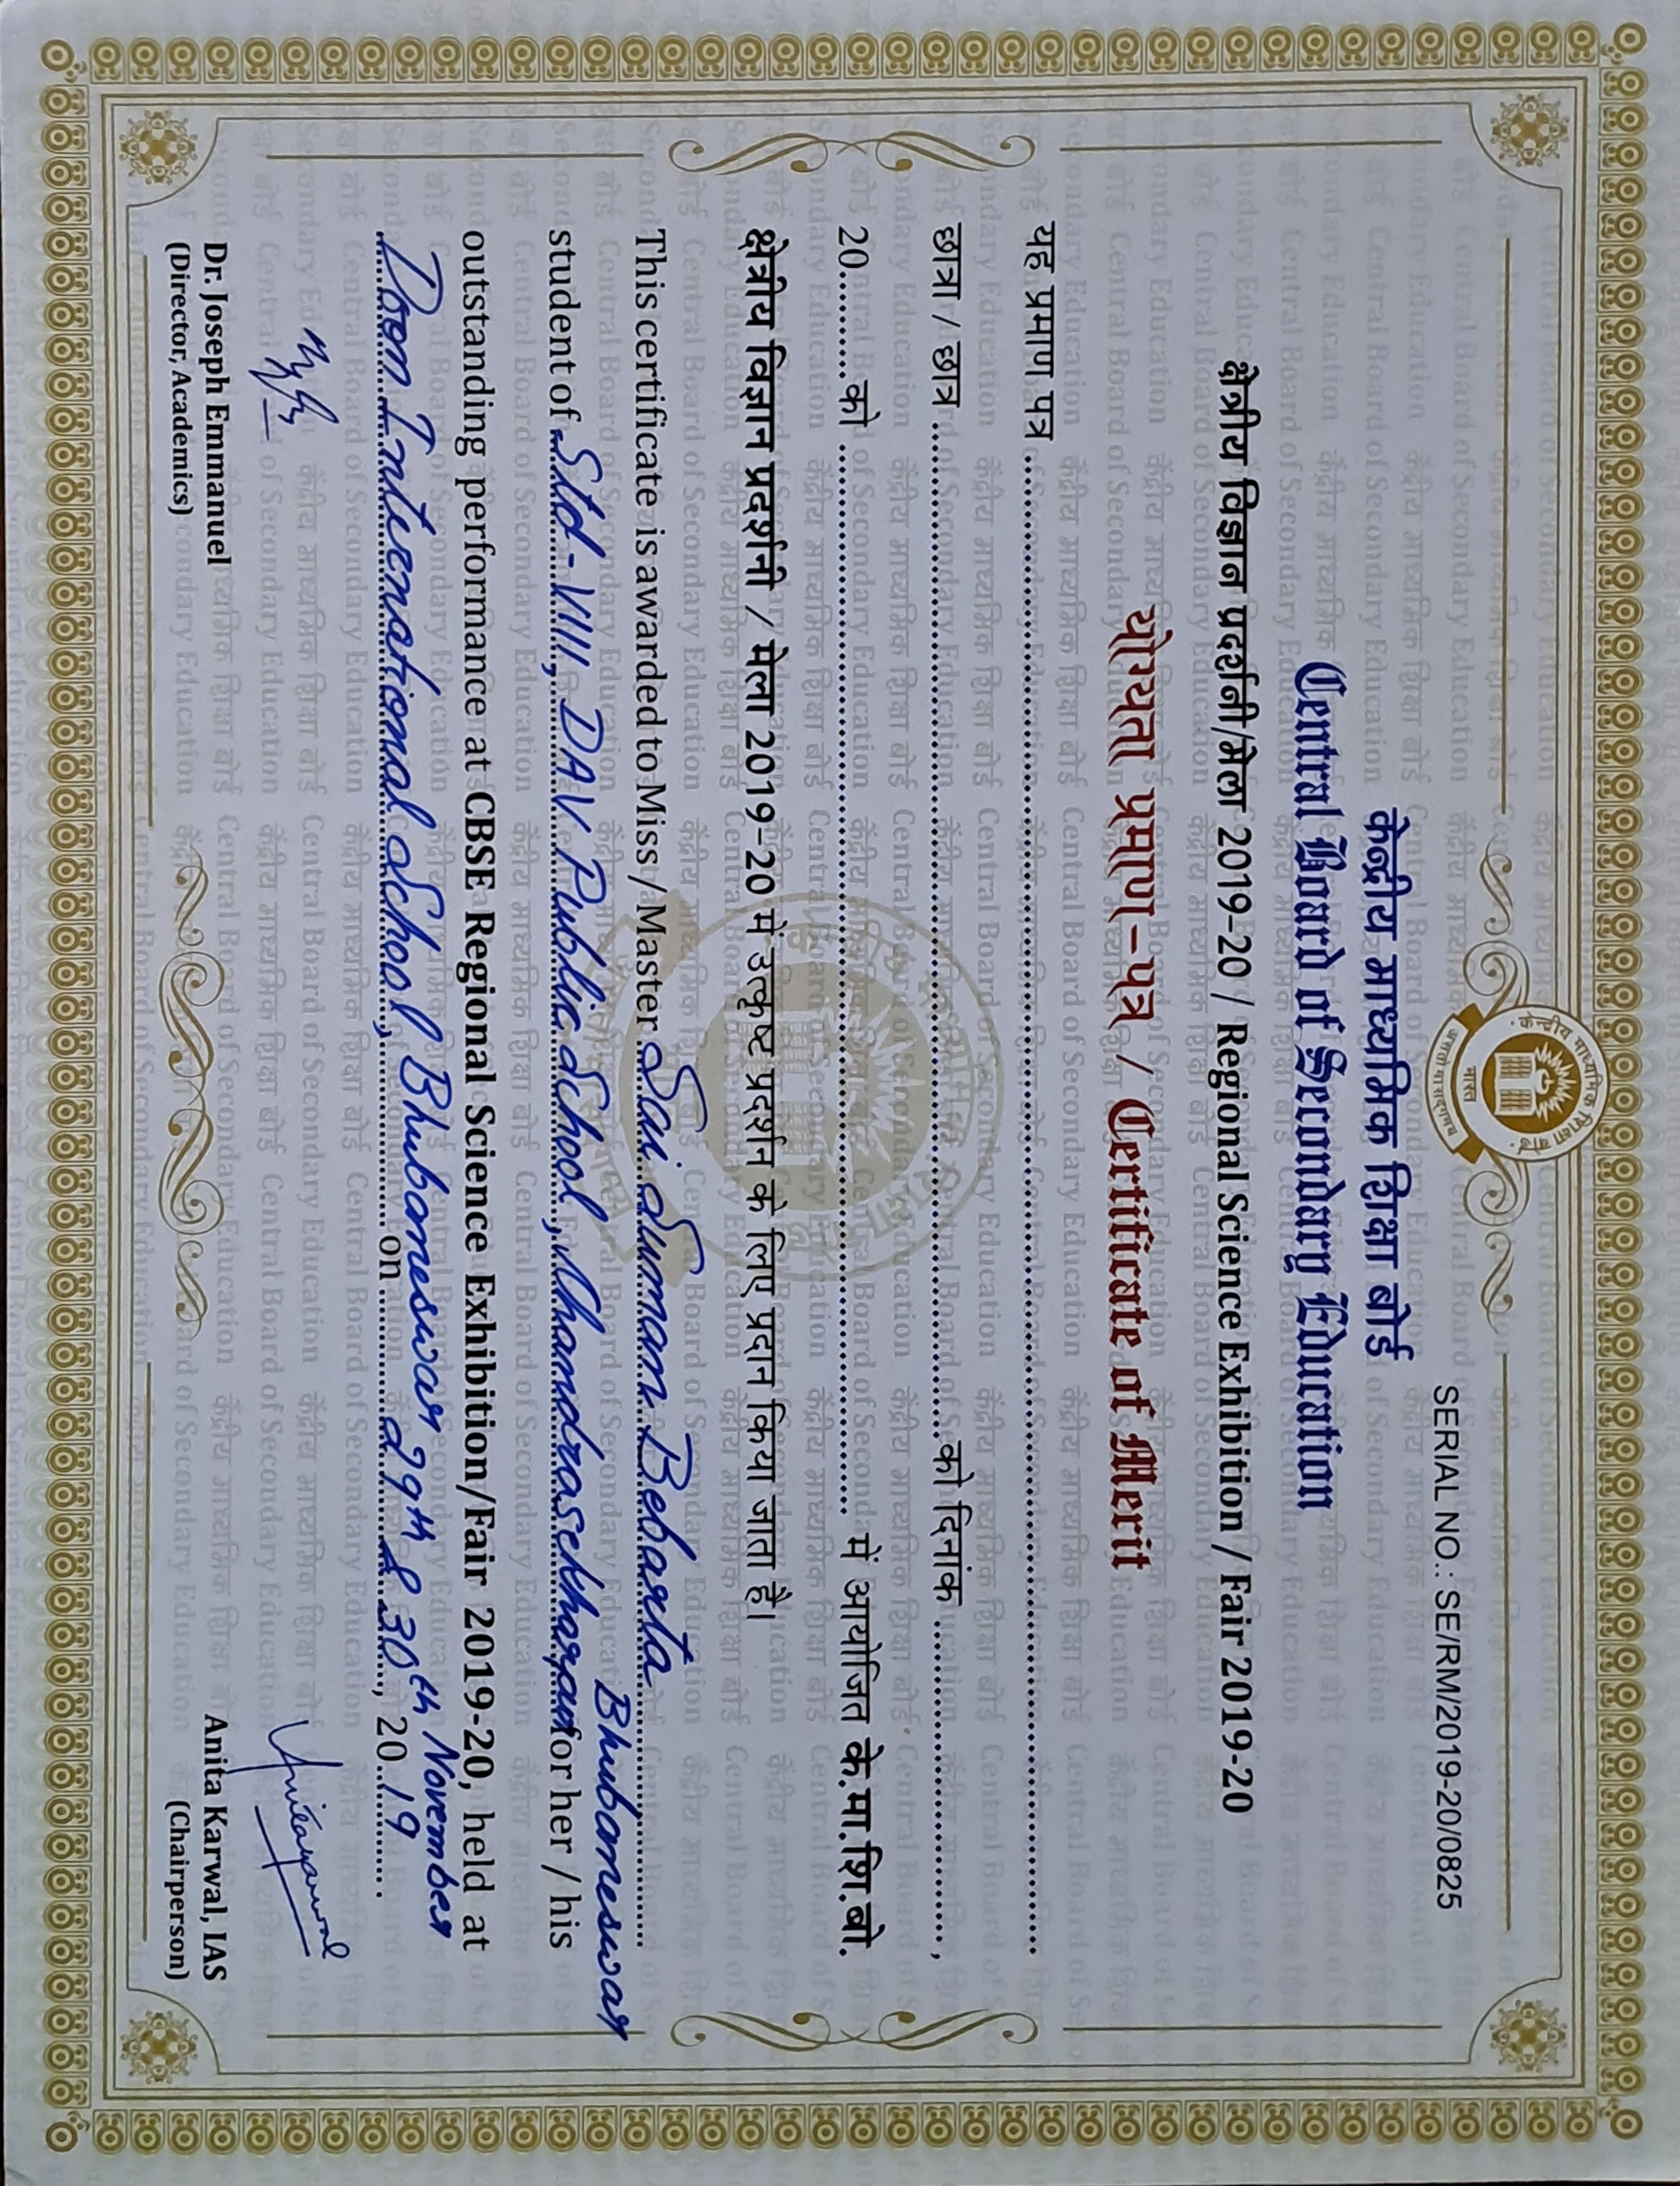 केन्द्रीय माध्यमिक शिक्षा बोर्ड
भारत
असतो मा सद्गमय
SERIAL NO.: SE/RM/2019-20/0825
केन्द्रीय माध्यमिक शिक्षा बोर्ड
Central Board of Secondary Education
क्षेत्रीय विज्ञान प्रदर्शनी/मेला 2019-20 / Regional Science Exhibition / Fair 2019-20
योग्यता प्रमाण-पत्र / Certificate of Merit
यह प्रमाण पत्र ........................
छात्रा / छात्र ........................को दिनांक ........................,
20...........को ........................ में आयोजित के.मा.शि.बो.
क्षेत्रीय विज्ञान प्रदर्शनी / मेला 2019-20 में उत्कृष्ट प्रदर्शन के लिए प्रदान किया जाता है।
This certificate is awarded to Miss / Master Sai Suman Bebarta
student of Std-VIII, DAV Public School, Chandrasekharpur Bhubaneswar for her / his
outstanding performance at CBSE Regional Science Exhibition/Fair 2019-20, held at
Doon International School, Bhubaneswar on 29th & 30th November, 2019.
Dr. Joseph Emmanuel
(Director, Academics)
Anita Karwal, IAS
(Chairperson)